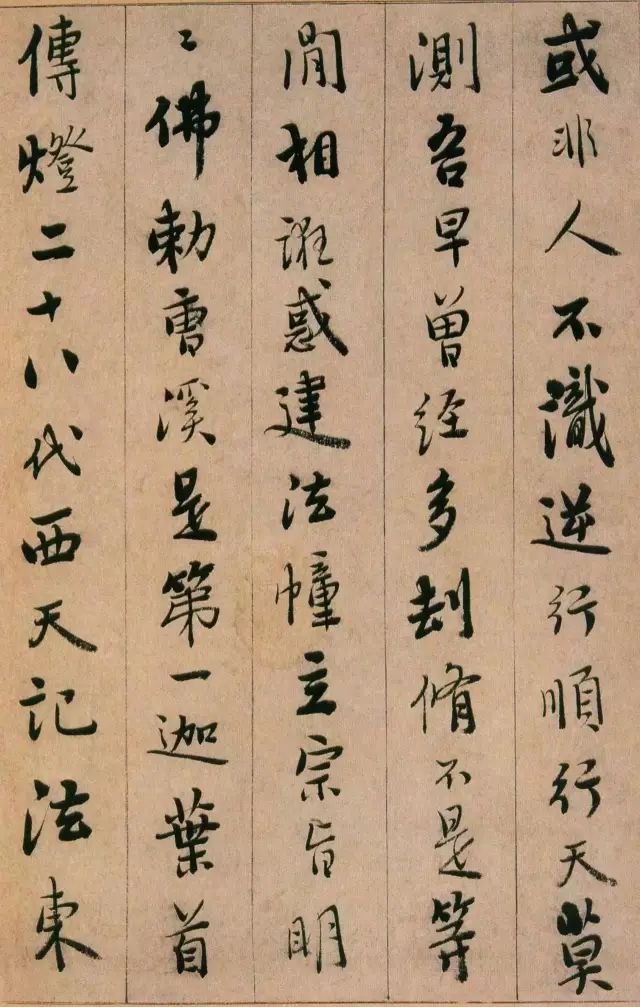 或非人不識逆行順行天莫
測吾早曾經多劫脩不是等
閑相誑惑建法幢立宗旨明
〻佛勅曹溪是第一迦葉首
傳燈二十八代西天記法東